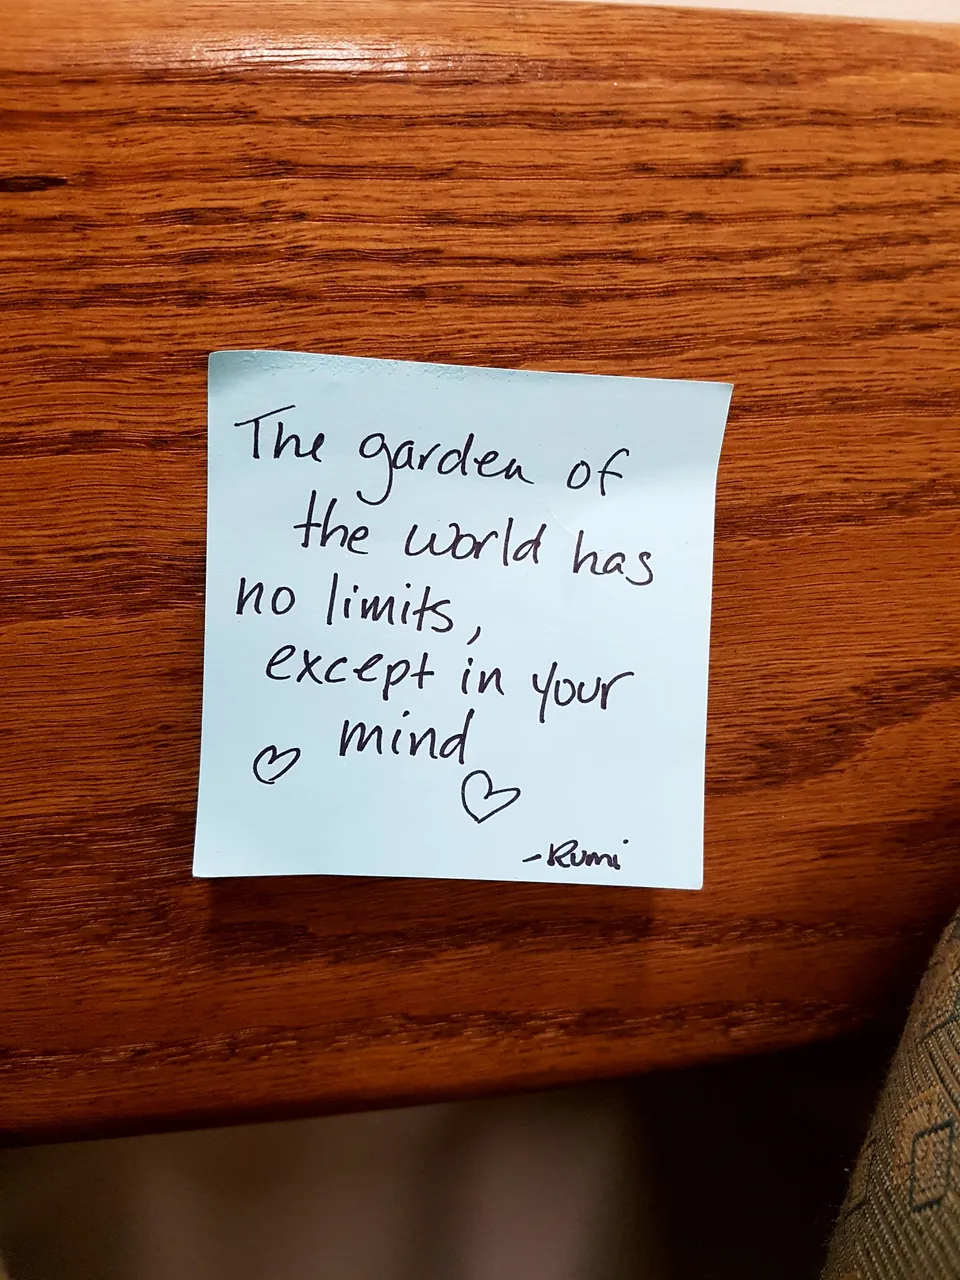 The garden of
the world has
no limits,
except in your
mind
-Rumi